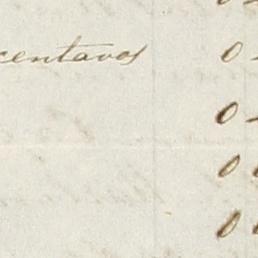 centavos 0
0
0
0